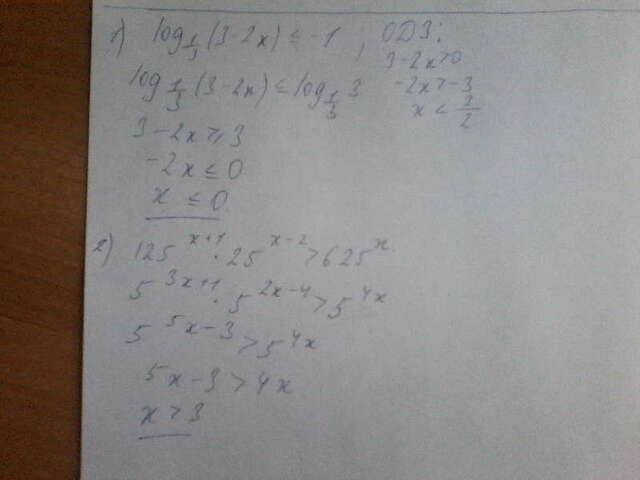 1) log 1/3 (3-2x) ≤ -1, ОДЗ:
3-2x>0
-2x>-3
x < 3/2
log 1/3 (3-2x) ≤ log 1/3 3
3-2x ≥ 3
-2x ≤ 0
x ≤ 0
2) 125^(x+1) · 25^(x-2) > 625^x
5^(3x+1) · 5^(2x-4) > 5^(4x)
5^(5x-3) > 5^(4x)
5x-3 > 4x
x > 3